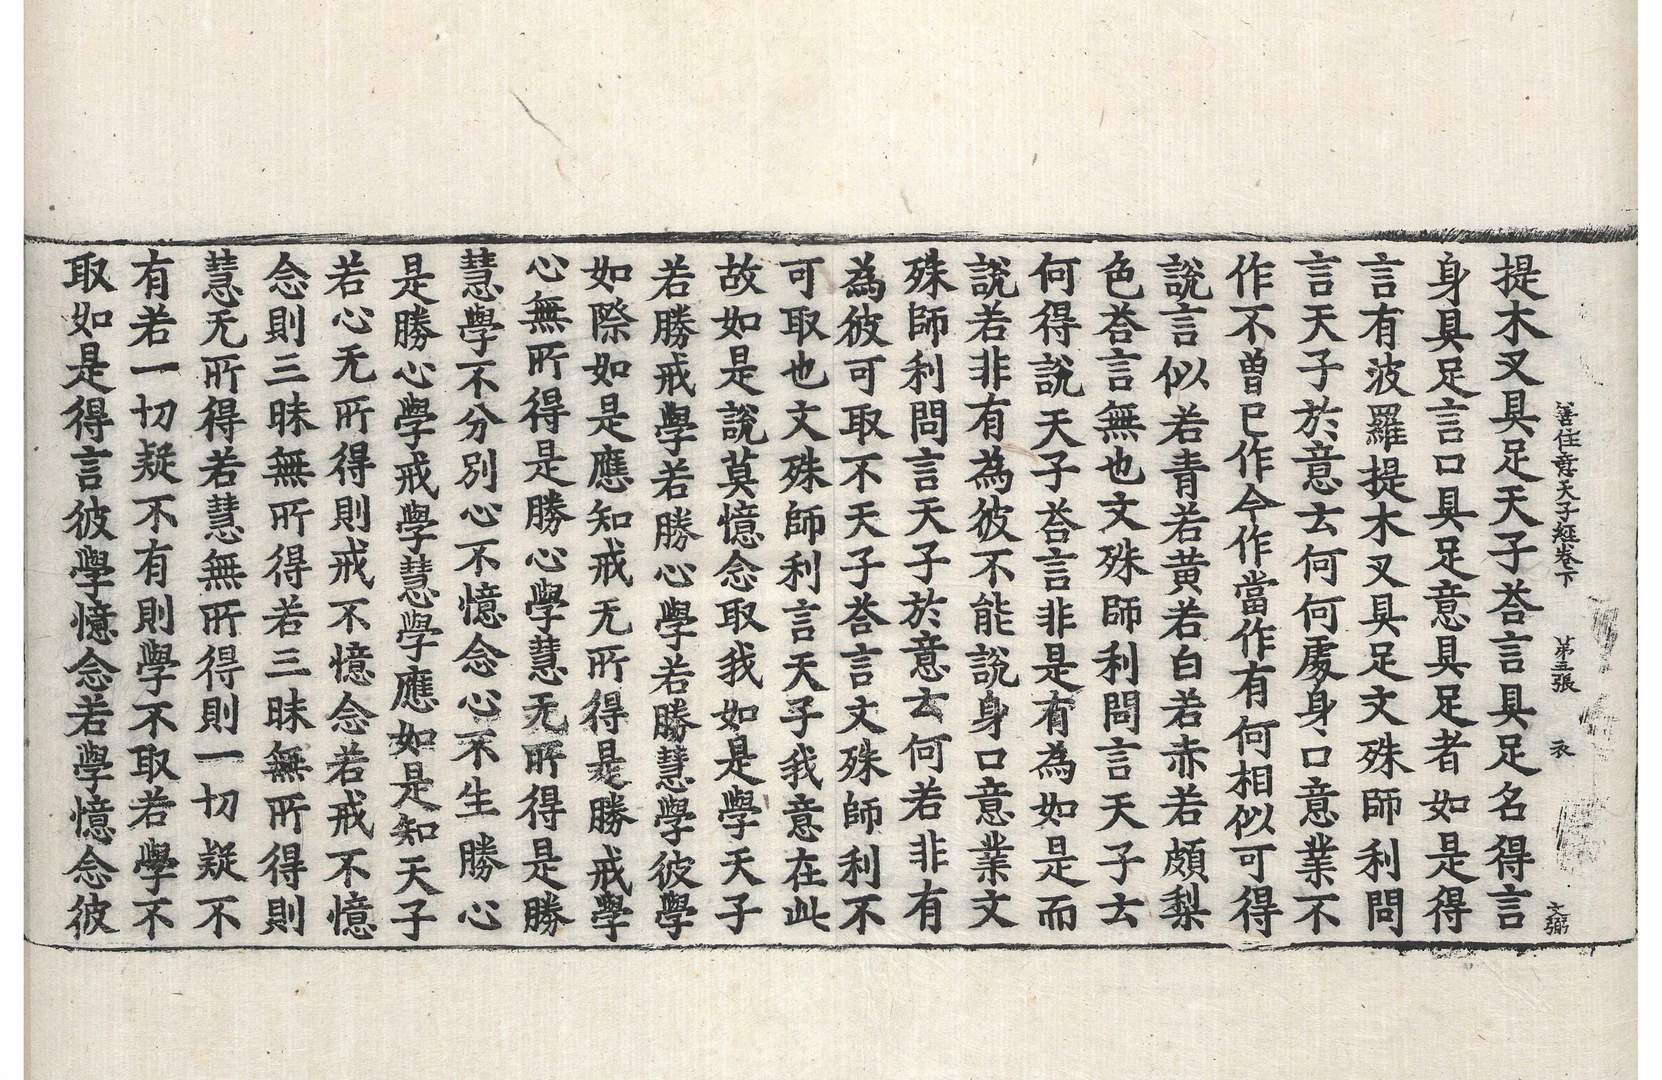 善住意天子經卷下 第三張 衣 文弼
提木叉具足天子荅言具足名得言
身具足言口具足意具足者如是得
言有波羅提木叉具足文殊師利問
言天子於意云何何處身口意業不
作不曾已作今作當作有何相似可得
說言似若青若黃若白若赤若頗梨
色荅言無也文殊師利問言天子云
何得說天子荅言非是有為如是而
說若非有為彼不能說身口意業文
殊師利問言天子於意云何若非有
為彼可取不天子荅言文殊師利不
可取也文殊師利言天子我意在此
故如是說莫憶念取我如是學天子
若勝戒學若勝心學若勝慧學彼學
如際如是應知戒无所得是勝戒學
心無所得是勝心學慧无所得是勝
慧學不分別心不憶念心不生勝心
是勝心學戒學慧學應如是知天子
若心无所得則戒不憶念若戒不憶
念則三昧無所得若三昧無所得則
慧无所得若慧無所得則一切疑不
有若一切疑不有則學不取若學不
取如是得言彼學憶念若學憶念彼